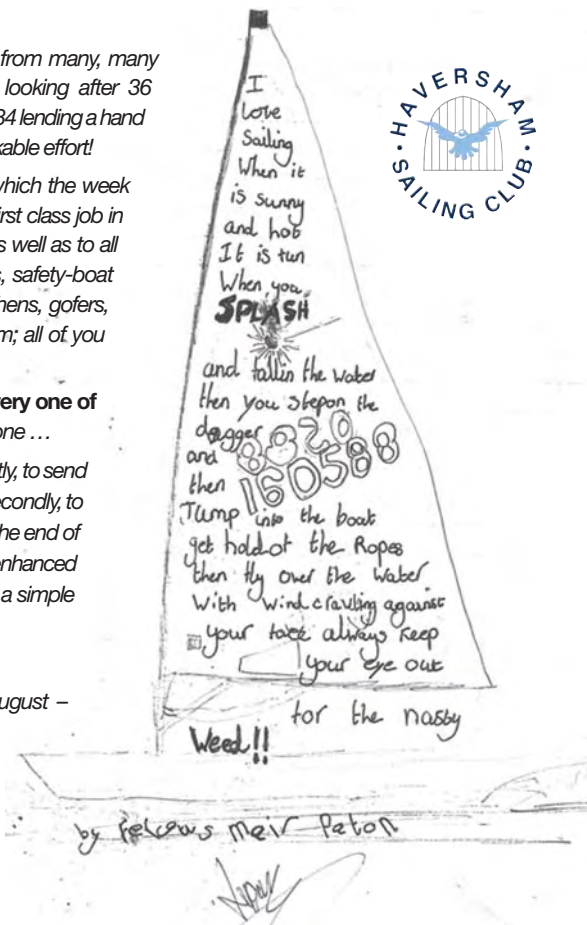 from many, many
looking after 36
34 lending a hand
kable effort!
which the week
irst class job in
s well as to all
s, safety-boat
hens, gofers,
m; all of you
very one of
one …
tly, to send
econdly, to
he end of
enhanced
a simple
ugust –
HAVERSHAM
SAILING CLUB
I
love
Sailing
When it
is sunny
and hot
It is fun
When you
SPLASH
and fall in the water
then you step on the
dagger
8820
and
160588
then
Jump into the boat
get hold of the Ropes
then fly over the water
with wind crawling against
your face always keep
your eye out
for the nasty
Weed!!
by